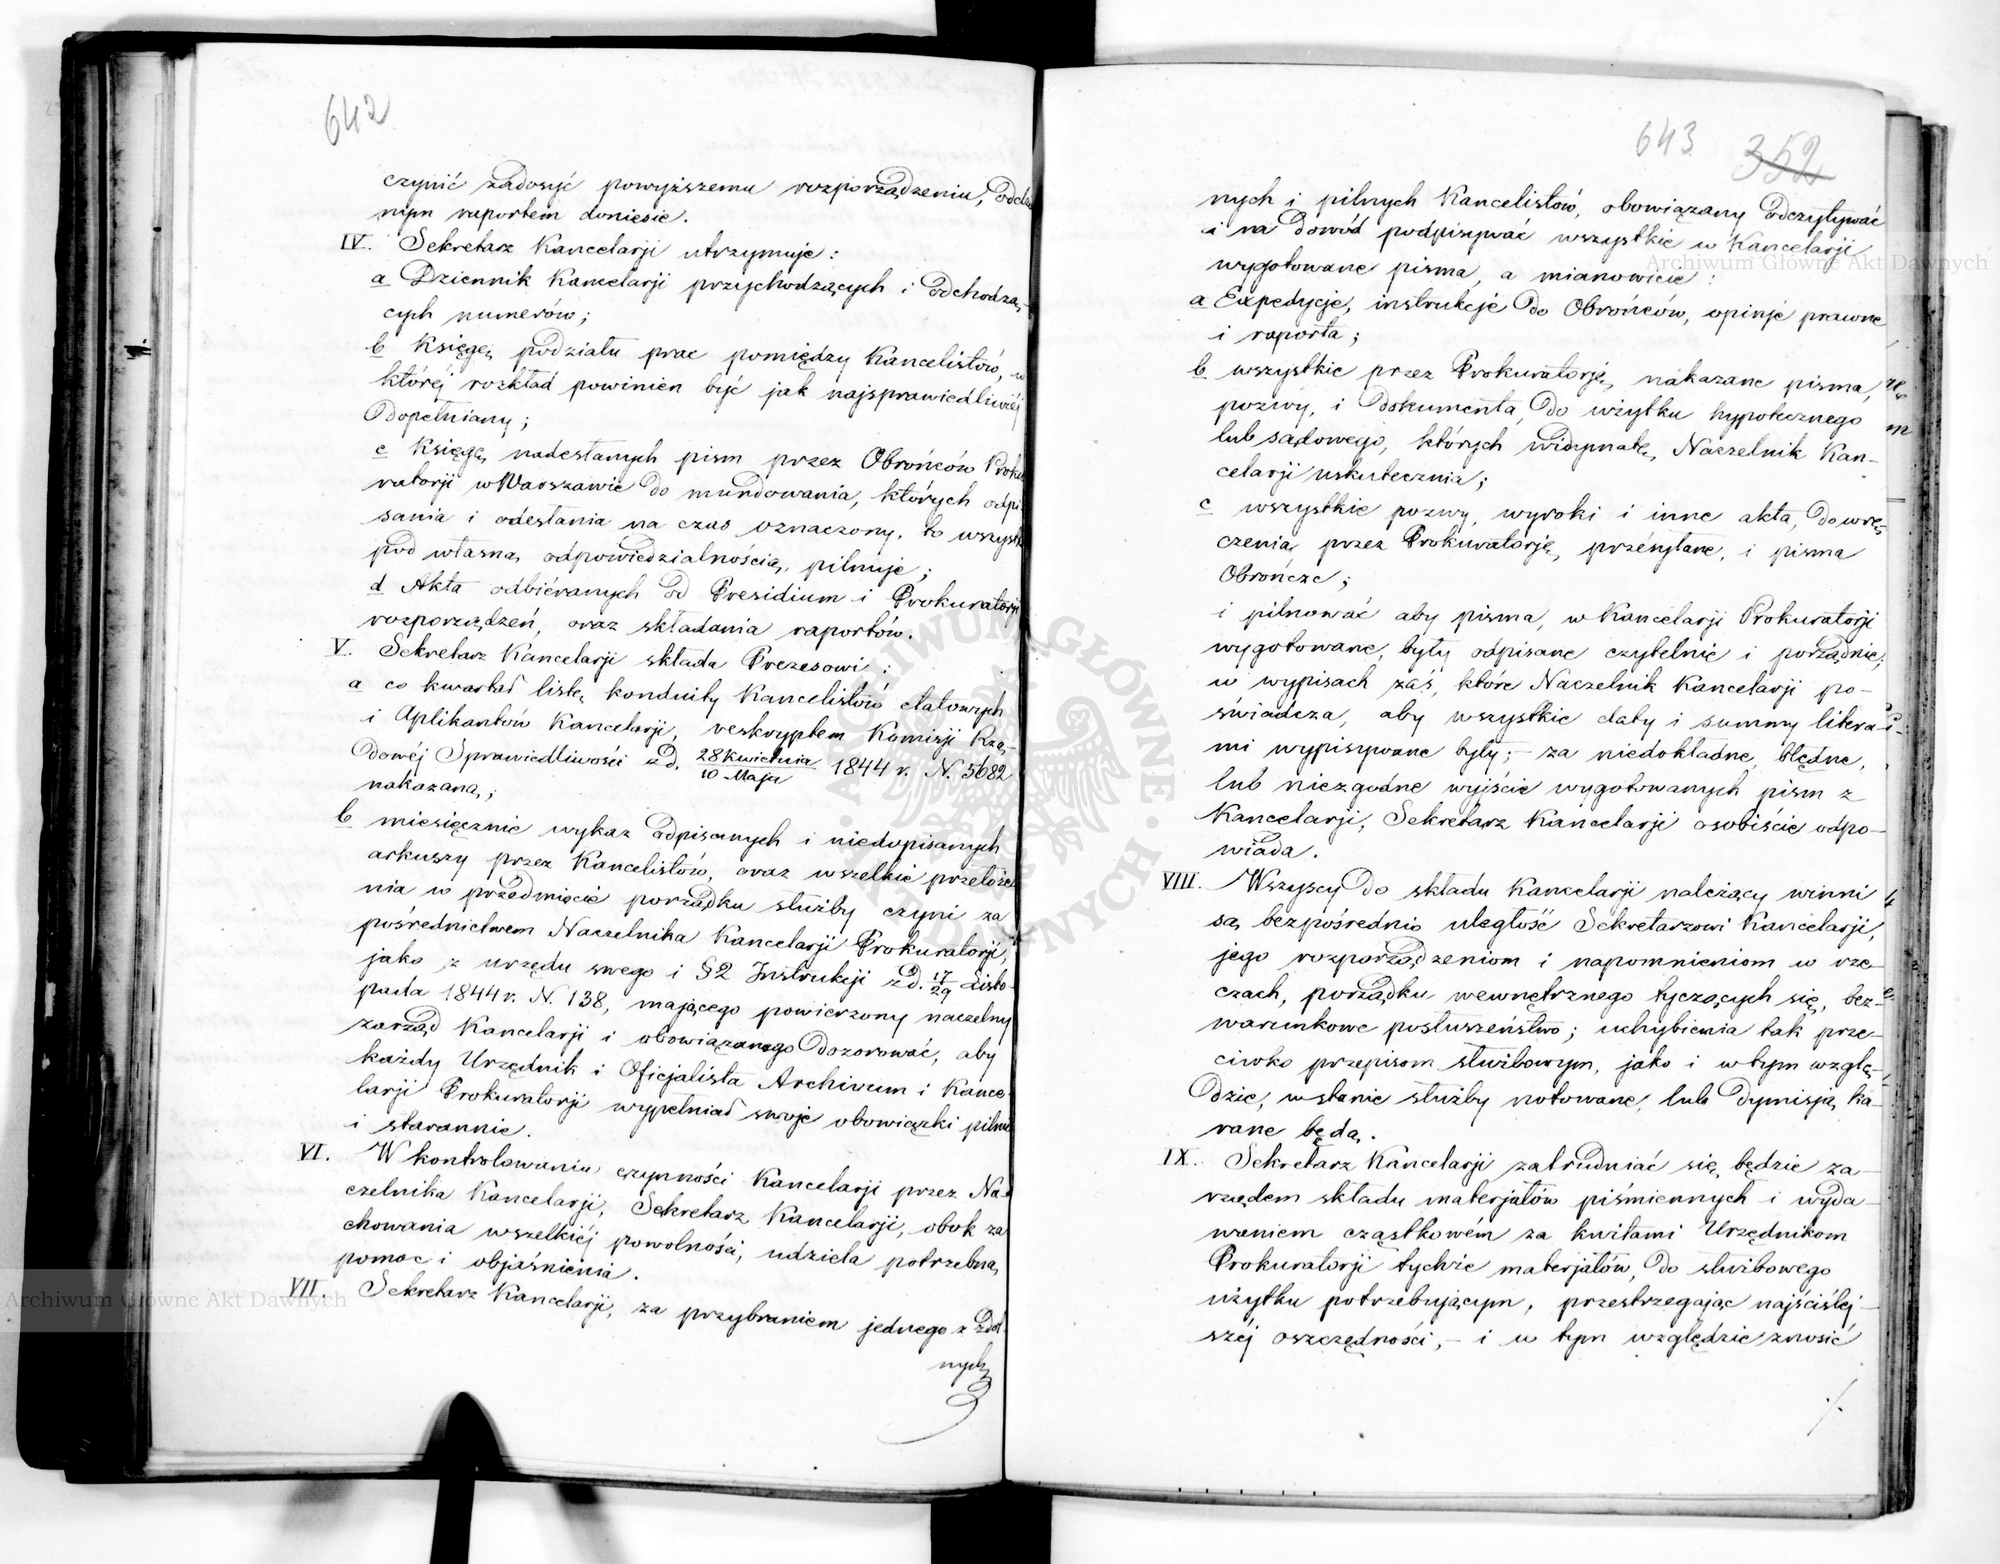 642
czynić zadosyć powyższemu rozporządzeniu,
nym raportem doniesie.
IV. Sekretarz Kancelarji utrzymuje:
a Dziennik Kancelarji przychodzących i odchodzą-
cych numerów;
b Księgę podziału prac pomiędzy Kancelistów, w
której rozkład powinien być jak najsprawiedliwiéj
dopełniany;
c Księgę nadesłanych pism przez Obrońców Proku
ratorji w Warszawie do mundowania, których odpi
sania i odesłania na czas oznaczony, to wszystk
pod własną odpowiedzialnością, pilnuje;
d Akta odbiéranych od Presidium i Prokuratorji
rozporządzeń, oraz składania raportów.
V. Sekretarz Kancelarji składa Prezesowi:
a co kwartał listę konduity Kancelistów etatowych
i Aplikantów Kancelarji, reskryptem Komisji Rzą-
dowéj Sprawiedliwości z d. 28 Kwietnia/10 Maja 1844 r. N. 5682
nakazaną;
b miesięcznie wykaz odpisanych i niedopisanych
arkuszy przez Kancelistów, oraz wszelkie przełoże
nia w przedmiocie porządku służby czyni za
pośrednictwem Naczelnika Kancelarji Prokuratorji,
jako z urzędu swego i §2 Instrukcji z d. 17/29 Listo-
pada 1844 r. N. 138, mającego powierzony naczelny
zarząd Kancelarji i obowiązanego dozorować, aby
każdy Urzędnik i Oficjalista Archiwum i Kance-
larji Prokuratorji wypełniał swoje obowiązki pilnie
i starannie.
VI. W kontrolowaniu czynności Kancelarji przez Na-
czelnika Kancelarji, Sekretarz Kancelarji, obok za
chowania wszelkiéj powolności, udziela potrzebną
pomoc i objaśnienia.
VII. Sekretarz Kancelarji, za przybraniem jednego z zdol-
nych
643 352
nych i pilnych Kancelistów, obowiązany odczytywać
i na dowód podpisywać wszystkie w Kancelarji
wygotowane pisma, a mianowicie:
a Expedycje, instrukcje do Obrońców, opinje prawne
i raporta;
b wszystkie przez Prokuratorję nakazane pisma,
pozwy, i dokumenta, do użytku hypotecznego
lub sądowego, których widymatę Naczelnik Kan-
celarji uskutecznia;
c wszystkie pozwy, wyroki i inne akta, do wrę-
czenia przez Prokuratorję przesyłane, i pisma
Obrończe;
i pilnować aby pisma, w Kancelarji Prokuratorji
wygotowane, były odpisane czytelnie i porządnie;
w wypisach zaś, które Naczelnik Kancelarji po-
świadcza, aby wszystkie daty i summy litera-
mi wypisywane były; – za niedokładne, błędne,
lub niezgodne wyjście wygotowanych pism z
Kancelarji, Sekretarz Kancelarji osobiście odpo-
wiada.
VIII. Wszyscy do składu Kancelarji należący winni
są bezpośrednio uległość Sekretarzowi Kancelarji,
jego rozporządzeniom i napomnieniom w rze-
czach, porządku wewnętrznego tyczących się, bez-
warunkowe posłuszeństwo; uchybienia tak prze-
ciwko przepisom służbowym, jako i w tym wzglę-
dzie, w stanie służby notowane, lub dymisją ka-
rane będą.
IX. Sekretarz Kancelarji zatrudniać się będzie za-
rządem składu materjałów piśmiennych i wyda-
waniem cząstkowém za kwitami Urzędnikom
Prokuratorji tychże materjałów, do służbowego
użytku potrzebującym, przestrzegając najściślej-
széj oszczędności, – i w tym względzie znosić
./.
Archiwum Główne Akt Dawnych
Archiwum Główne Akt Dawnych
ARCHIWUM GŁÓWNE AKT DAWNYCH